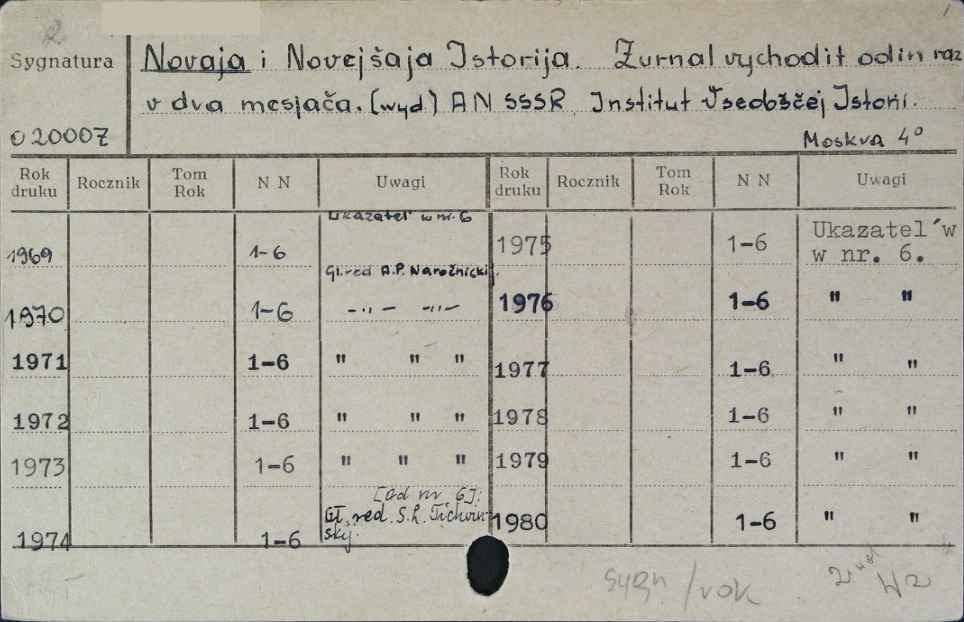 Sygnatura
Novaja i Novejšaja Istorija. Żurnal vychodit odin raz
v dva mesjača. (wyd) AN SSSR Institut Vseobščej Istorii.
O 20007
Moskva 4°
Rok druku Rocznik Tom Rok N N Uwagi Rok druku Rocznik Tom Rok N N Uwagi
1969 1-6 Ukazatel' w nr. 6 1975 1-6 Ukazatel´w
w nr. 6.
Gl. red A.P. Narožnickij.
1970 1-6 -"- -"- 1976 1-6 " "
1971 1-6 " " " 1977 1-6 " "
1972 1-6 " " " 1978 1-6 " "
1973 1-6 " " " 1979 1-6 " "
[Od nr 6]:
Gł. red. S.L. Tichvin-
sky.
1974 1-6 1980 1-6 " "
sygn/rok